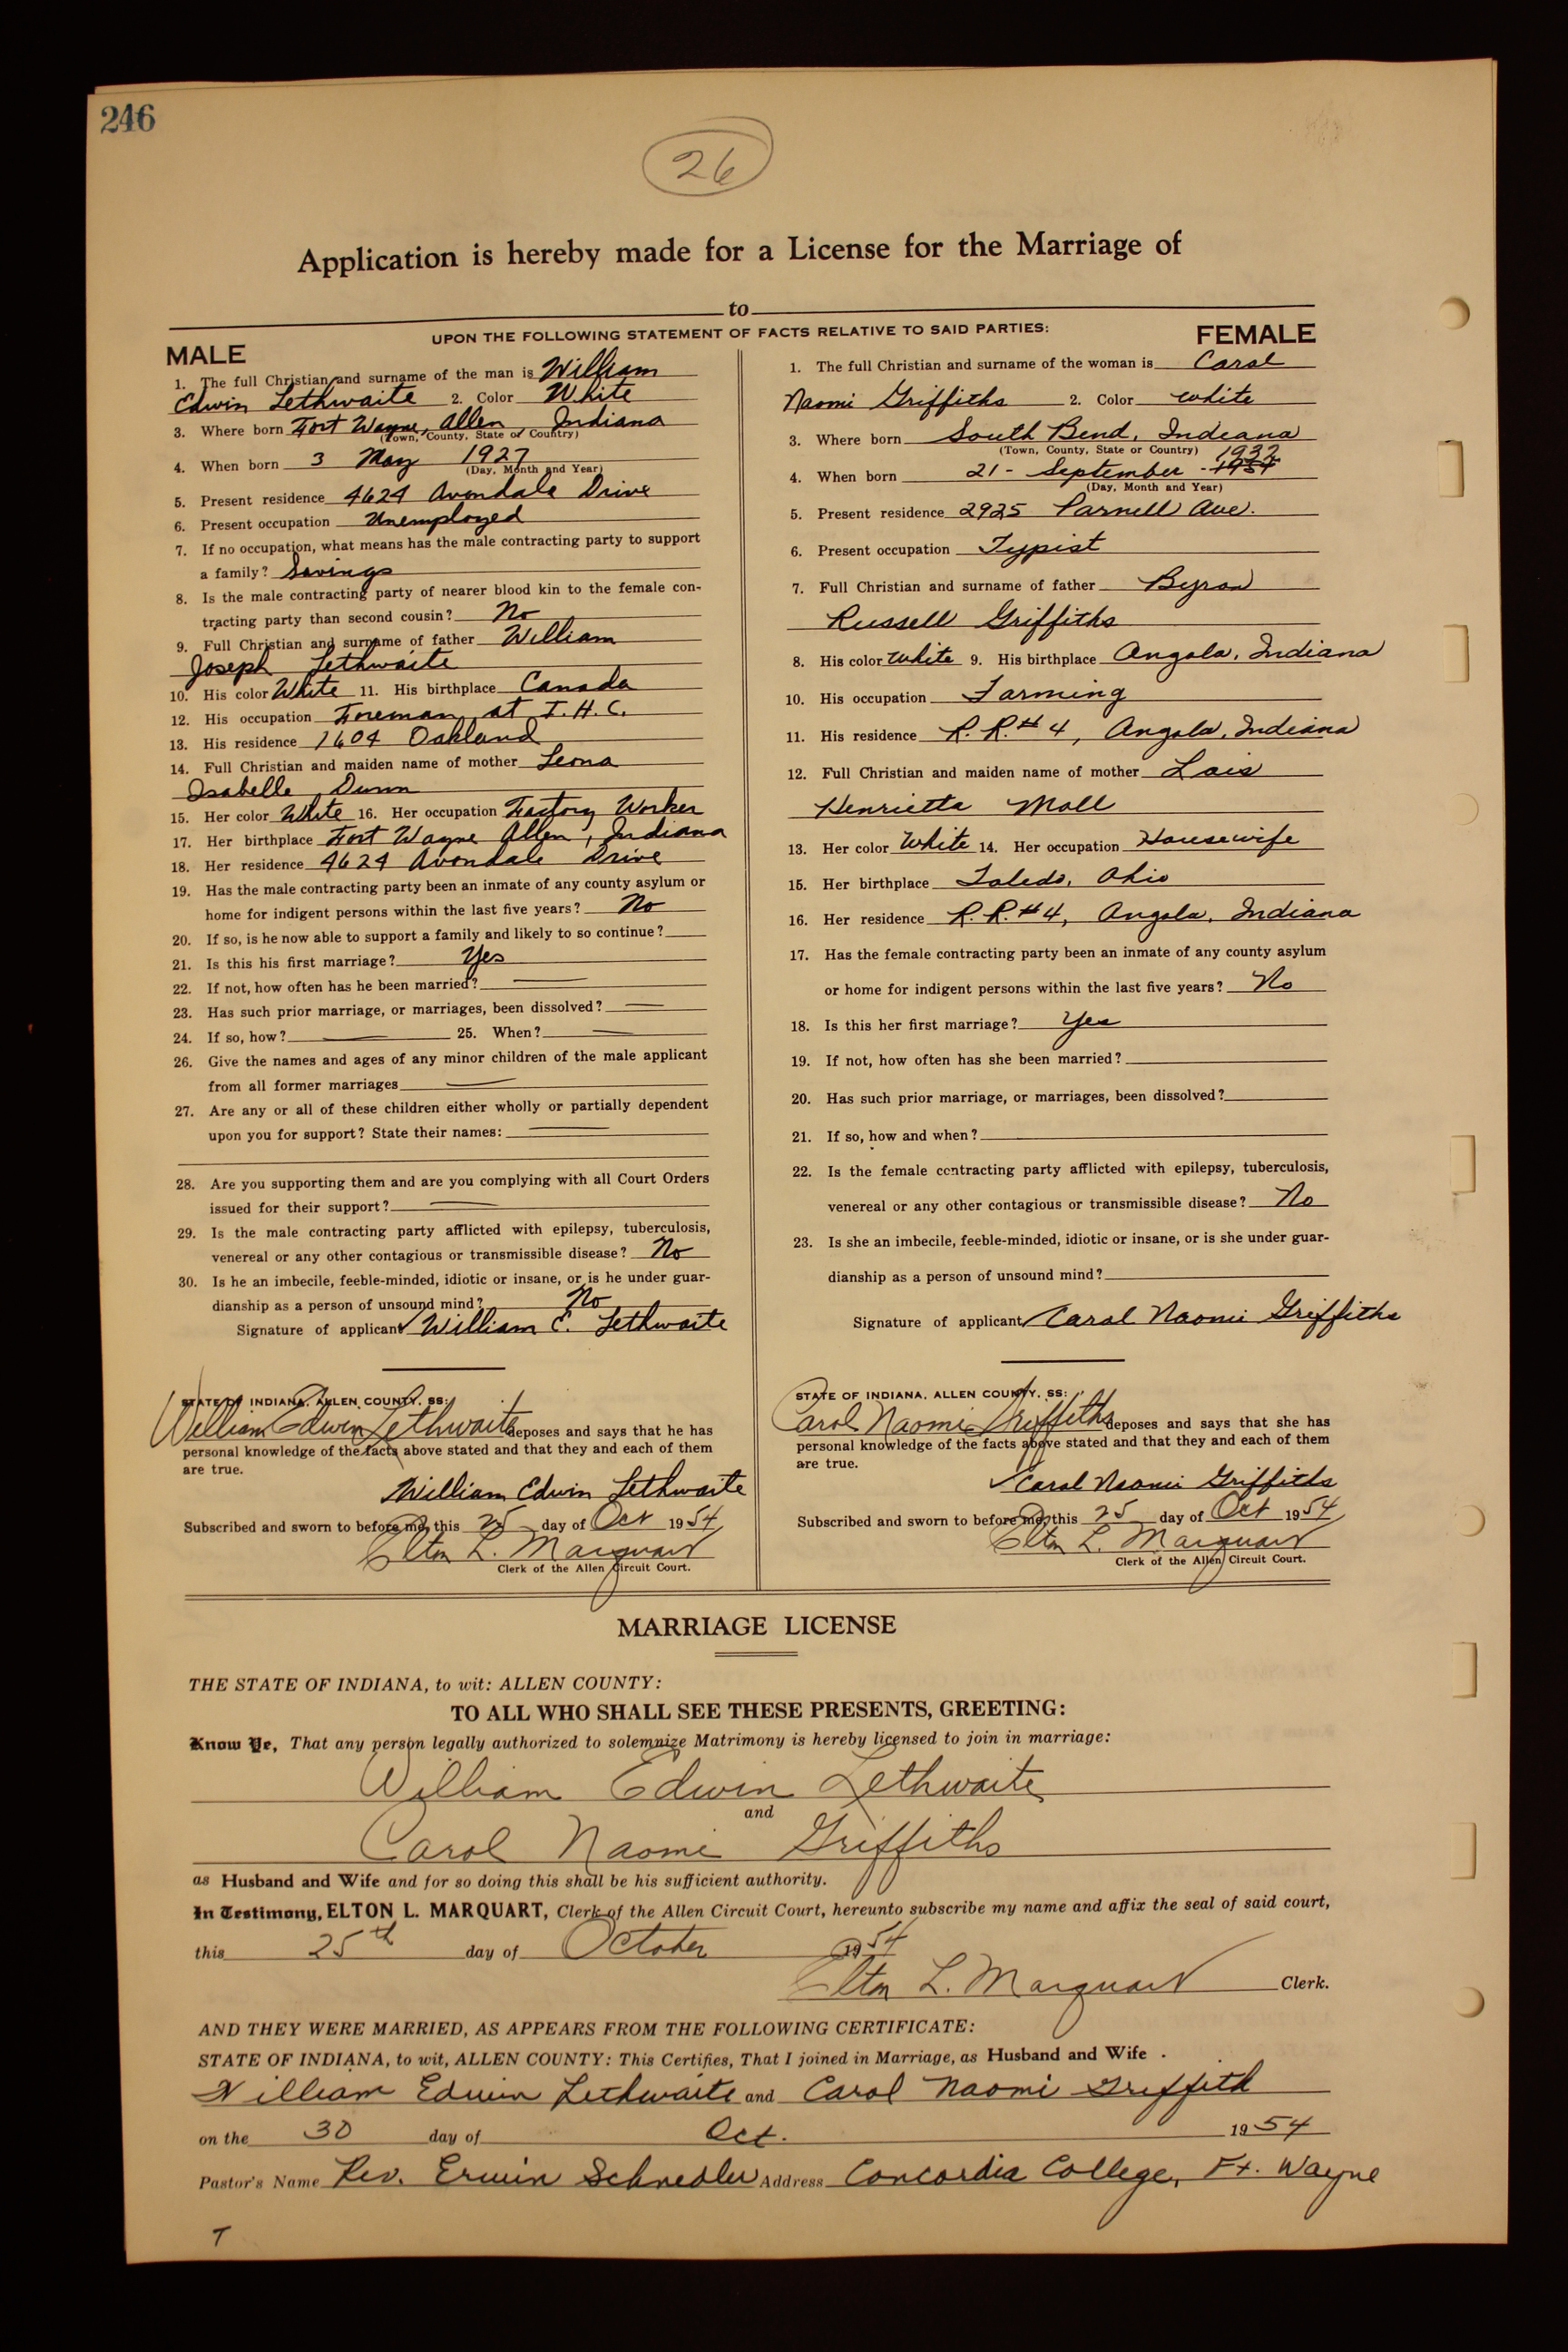 246
26
Application is hereby made for a License for the Marriage of
to
UPON THE FOLLOWING STATEMENT OF FACTS RELATIVE TO SAID PARTIES:
MALE
1. The full Christian and surname of the man is William
Edwin Lethwaite 2. Color White
3. Where born Fort Wayne, Allen Indiana
(Town, County, State or Country)
4. When born 3 May 1927
(Day, Month and Year)
5. Present residence 4624 Avondale Drive
6. Present occupation Unemployed
7. If no occupation, what means has the male contracting party to support
a family? Savings
8. Is the male contracting party of nearer blood kin to the female con-
tracting party than second cousin? No
9. Full Christian and surname of father William
Joseph Lethwaite
10. His color White 11. His birthplace Canada
12. His occupation Foreman at I.H.C.
13. His residence 1604 Oakland
14. Full Christian and maiden name of mother Leona
Isabelle Dunn
15. Her color White 16. Her occupation Factory Worker
17. Her birthplace Fort Wayne Allen, Indiana
18. Her residence 4624 Avondale Drive
19. Has the male contracting party been an inmate of any county asylum or
home for indigent persons within the last five years? No
20. If so, is he now able to support a family and likely to so continue?
21. Is this his first marriage? Yes
22. If not, how often has he been married?
23. Has such prior marriage, or marriages, been dissolved?
24. If so, how? 25. When?
26. Give the names and ages of any minor children of the male applicant
from all former marriages
27. Are any or all of these children either wholly or partially dependent
upon you for support? State their names:
28. Are you supporting them and are you complying with all Court Orders
issued for their support?
29. Is the male contracting party afflicted with epilepsy, tuberculosis,
venereal or any other contagious or transmissible disease? No
30. Is he an imbecile, feeble-minded, idiotic or insane, or is he under guar-
dianship as a person of unsound mind? No
Signature of applicant William E. Lethwaite
STATE OF INDIANA, ALLEN COUNTY, SS:
William Edwin Lethwaite deposes and says that he has
personal knowledge of the facts above stated and that they and each of them
are true.
William Edwin Lethwaite
Subscribed and sworn to before me, this 25 day of Oct 1954
Elton L. Marquart
Clerk of the Allen Circuit Court.
FEMALE
1. The full Christian and surname of the woman is Carol
Naomi Griffiths 2. Color White
3. Where born South Bend, Indiana
(Town, County, State or Country)
1932
4. When born 21 - September - 1934
(Day, Month and Year)
5. Present residence 2925 Parnell Ave.
6. Present occupation Typist
7. Full Christian and surname of father Byron
Russell Griffiths
8. His color White 9. His birthplace Angola, Indiana
10. His occupation Farming
11. His residence R.R.#4, Angola, Indiana
12. Full Christian and maiden name of mother Lois
Henrietta Moll
13. Her color White 14. Her occupation Housewife
15. Her birthplace Toledo, Ohio
16. Her residence R.R.#4, Angola, Indiana
17. Has the female contracting party been an inmate of any county asylum
or home for indigent persons within the last five years? No
18. Is this her first marriage? Yes
19. If not, how often has she been married?
20. Has such prior marriage, or marriages, been dissolved?
21. If so, how and when?
22. Is the female contracting party afflicted with epilepsy, tuberculosis,
venereal or any other contagious or transmissible disease? No
23. Is she an imbecile, feeble-minded, idiotic or insane, or is she under guar-
dianship as a person of unsound mind?
Signature of applicant Carol Naomi Griffiths
STATE OF INDIANA, ALLEN COUNTY, SS:
Carol Naomi Griffiths deposes and says that she has
personal knowledge of the facts above stated and that they and each of them
are true.
Carol Naomi Griffiths
Subscribed and sworn to before me, this 25 day of Oct 1954
Elton L. Marquart
Clerk of the Allen Circuit Court.
MARRIAGE LICENSE
THE STATE OF INDIANA, to wit: ALLEN COUNTY:
TO ALL WHO SHALL SEE THESE PRESENTS, GREETING:
Know Ye, That any person legally authorized to solemnize Matrimony is hereby licensed to join in marriage:
William Edwin Lethwaite
and
Carol Naomi Griffiths
as Husband and Wife and for so doing this shall be his sufficient authority.
In Testimony, ELTON L. MARQUART, Clerk of the Allen Circuit Court, hereunto subscribe my name and affix the seal of said court,
this 25th day of October 1954
Elton L. Marquart Clerk.
AND THEY WERE MARRIED, AS APPEARS FROM THE FOLLOWING CERTIFICATE:
STATE OF INDIANA, to wit, ALLEN COUNTY: This Certifies, That I joined in Marriage, as Husband and Wife.
William Edwin Lethwaite and Carol Naomi Griffith
on the 30 day of Oct. 1954
Pastor's Name Rev. Erwin Schnedler Address Concordia College, Ft. Wayne
T